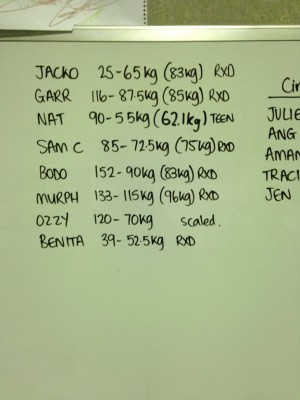 JACKO 25-65kg (83kg) RXD
GARR 116-87.5kg (85kg) RXD
NAT 90-55kg (62.1kg) TEEN
SAM C 85-72.5kg (75kg) RXD
BODO 152-90kg (83kg) RXD
MURPH 133-115kg (96kg) RXD
OZZY 120-70kg scaled.
BENITA 39-52.5kg RXD
Cin
JULIE
ANG
AMAN
TRACI
JEN